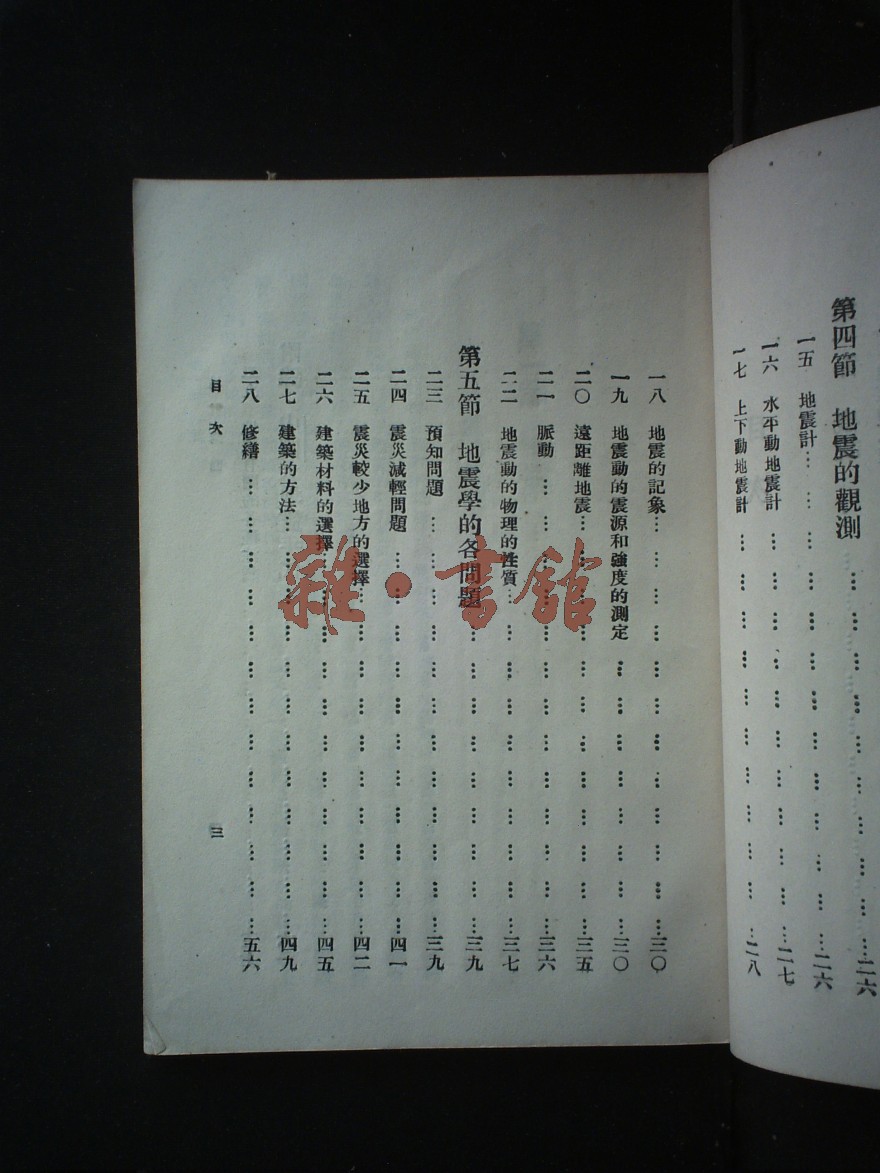 第四節 地震的觀測……………………………二六
一五 地震計……………………………二六
一六 水平動地震計……………………………二七
一七 上下動地震計……………………………二八
一八 地震的記象……………………………三〇
一九 地震動的震源和強度的測定……………………………三〇
二〇 遠距離地震……………………………三五
二一 脈動……………………………三六
二二 地震動的物理的性質……………………………三七
第五節 地震學的各問題……………………………三九
二三 預知問題……………………………三九
二四 震災減輕問題……………………………四一
二五 震災較少地方的選擇……………………………四二
二六 建築材料的選擇……………………………四五
二七 建築的方法……………………………四九
二八 修繕……………………………五六
目次 三
雜·書館